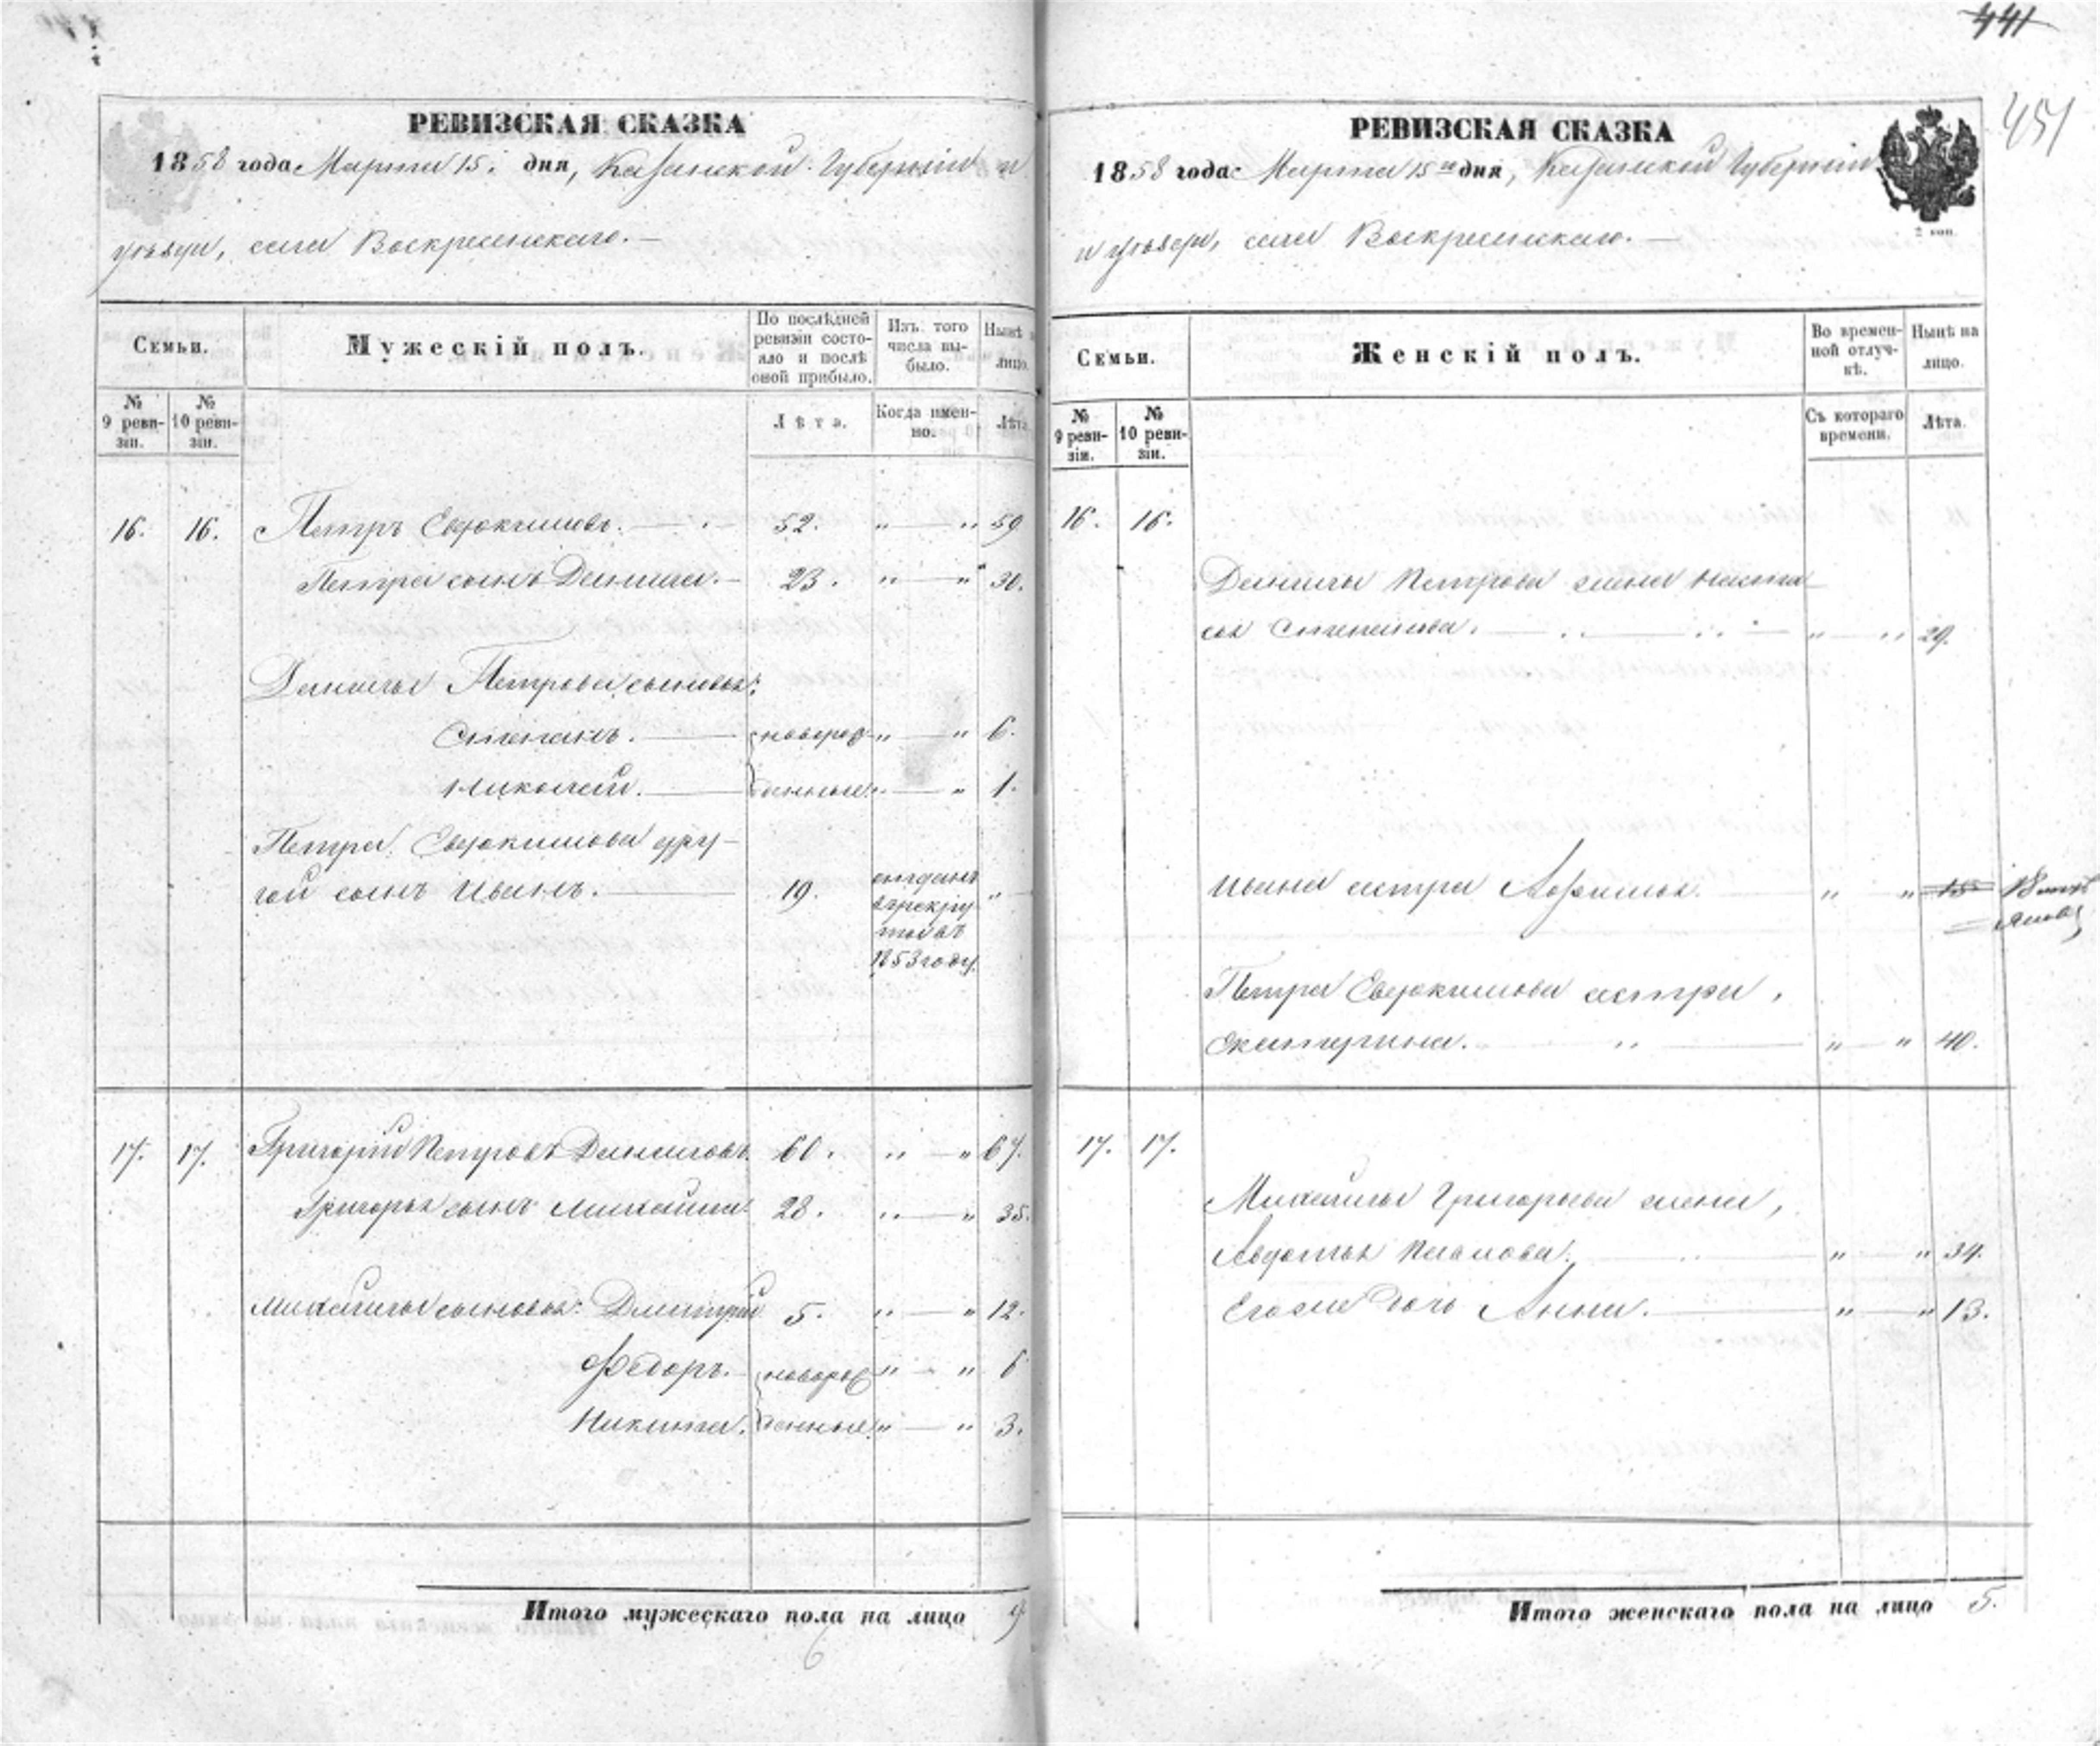 441
451
РЕВИЗСКАЯ СКАЗКА
1858 года Марта 15. дня, Казанской Губернiи и
уѣзда, села Воскресенскаго. —
Семьи.
Мужескiй полъ.
По послѣдней ревизiи состояло и послѣ оной прибыло.
Изъ того числа выбыло.
Нынѣ на лицо.
№ 9 ревизiи.
№ 10 ревизiи.
Лѣта.
Когда именно.
Лѣта.
16. 16. Петръ Евдокимовъ. — 52. " — " 59
Петра сынъ Данила. — 23. " — " 30.
Данилы Петрова сыновья:
Степанъ. — новорож- " — " 6.
Николай. — денные. " — " 1.
Петра Евдокимова дру-
гой сынъ Иванъ. — 19. отданъ в рекруты въ 1853 году. " —
17. 17. Григорiй Петровъ Даниловъ. 60. " — " 67.
Григорья сынъ Михаила. 28. " — " 35.
Михайлы сыновья: Дмитрiй 5. " — " 12.
Ѳедоръ. — новорож- " — " 6
Никита. денные. " — " 3.
Итого мужескаго пола на лицо 9
6
РЕВИЗСКАЯ СКАЗКА
1858 года Марта 15го дня, Казанской Губернiи
и уѣзда, села Воскресенскаго. —
2 коп.
Семьи.
Женскiй полъ.
Во временной отлучкѣ.
Нынѣ на лицо.
№ 9 ревизiи.
№ 10 ревизiи.
Съ котораго времени.
Лѣта.
16. 16.
Данилы Петрова жена Наста-
сья Степанова. — " — " 29.
Ивана сестра Афимья. " " 15 18
Петра Евдокимова сестра,
Екатерина. — " — " 40.
17. 17.
Михайлы Григорьева жена,
Авдотья — " — " 34.
Его же дочь Анна. — " — " 13.
Итого женскаго пола на лицо 5.